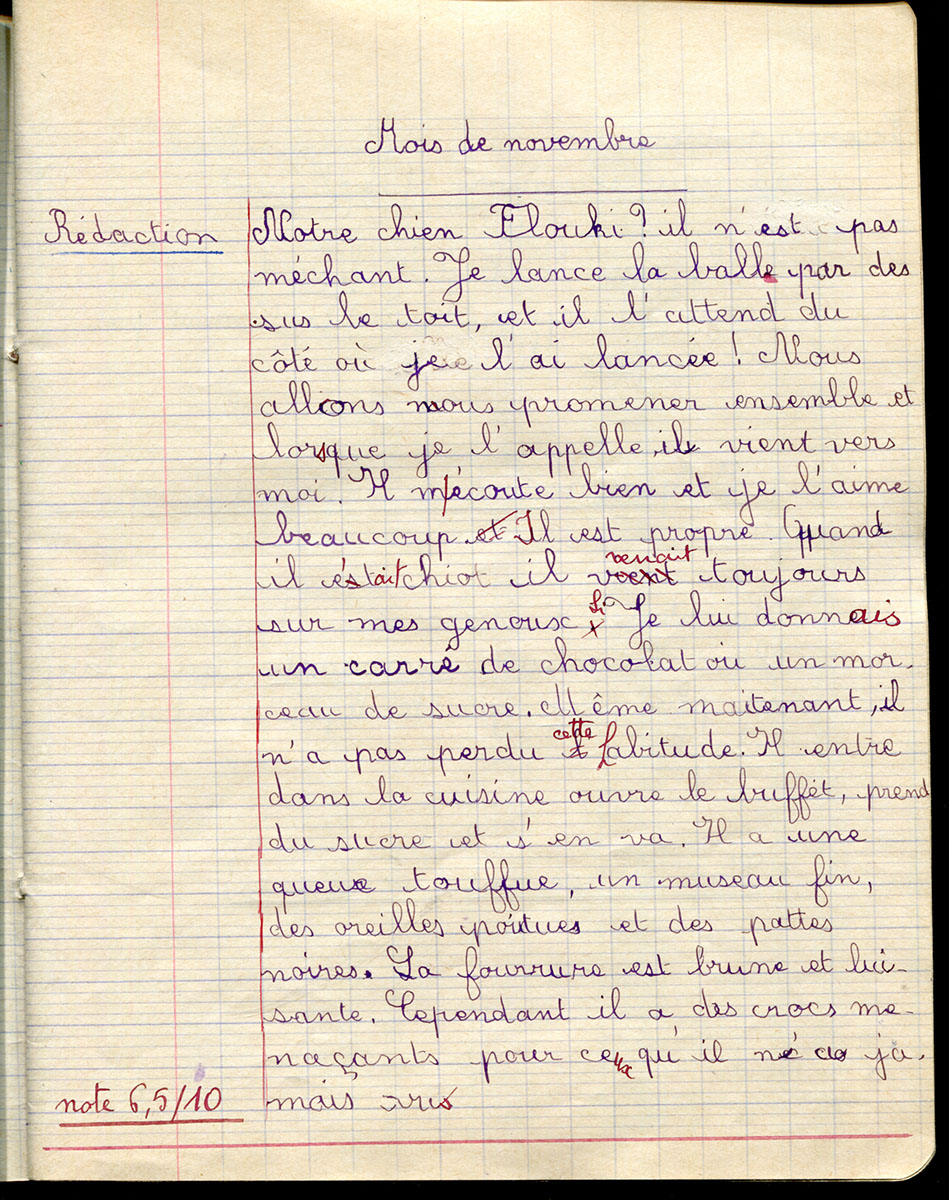 Mois de novembre
Rédaction
Notre chien Flouki? il n'est pas
méchant. Je lance la balle par des
sus le toit, et il l'attend du
côté où je l'ai lancée! Nous
allons nous promener ensemble et
lorsque je l'appelle, il vient vers
moi. Il m'écoute bien et je l'aime
beaucoup. et Il est propre. Quand
venait
il était chiot il toujours
sur mes genoux Je lui donnais
un carré de chocolat ou un mor-
ceau de sucre. Même maitenant, il
cette
n'a pas perdu habitude. Il entre
dans la cuisine ouvre le buffet, prend
du sucre et s'en va. Il a une
queue touffue, un museau fin,
des oreilles pointues et des pattes
noires. Sa fourrure est brune et lui-
sante. Cependant il a des crocs me-
naçants pour ce qu'il ja-
mais
note 6,5/10